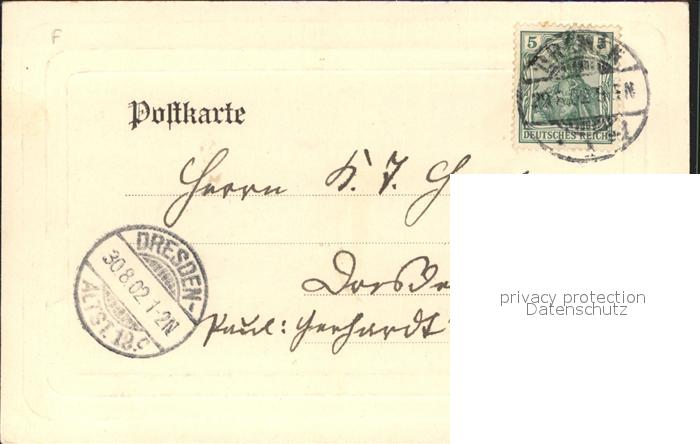 F
5 5
DEUTSCHES REICH
Postkarte
Herrn K. J.
DRESDEN-
30.8.02.1-2N
ALTST. 19.c
Paul: Gerhardt
privacy protection
Datenschutz